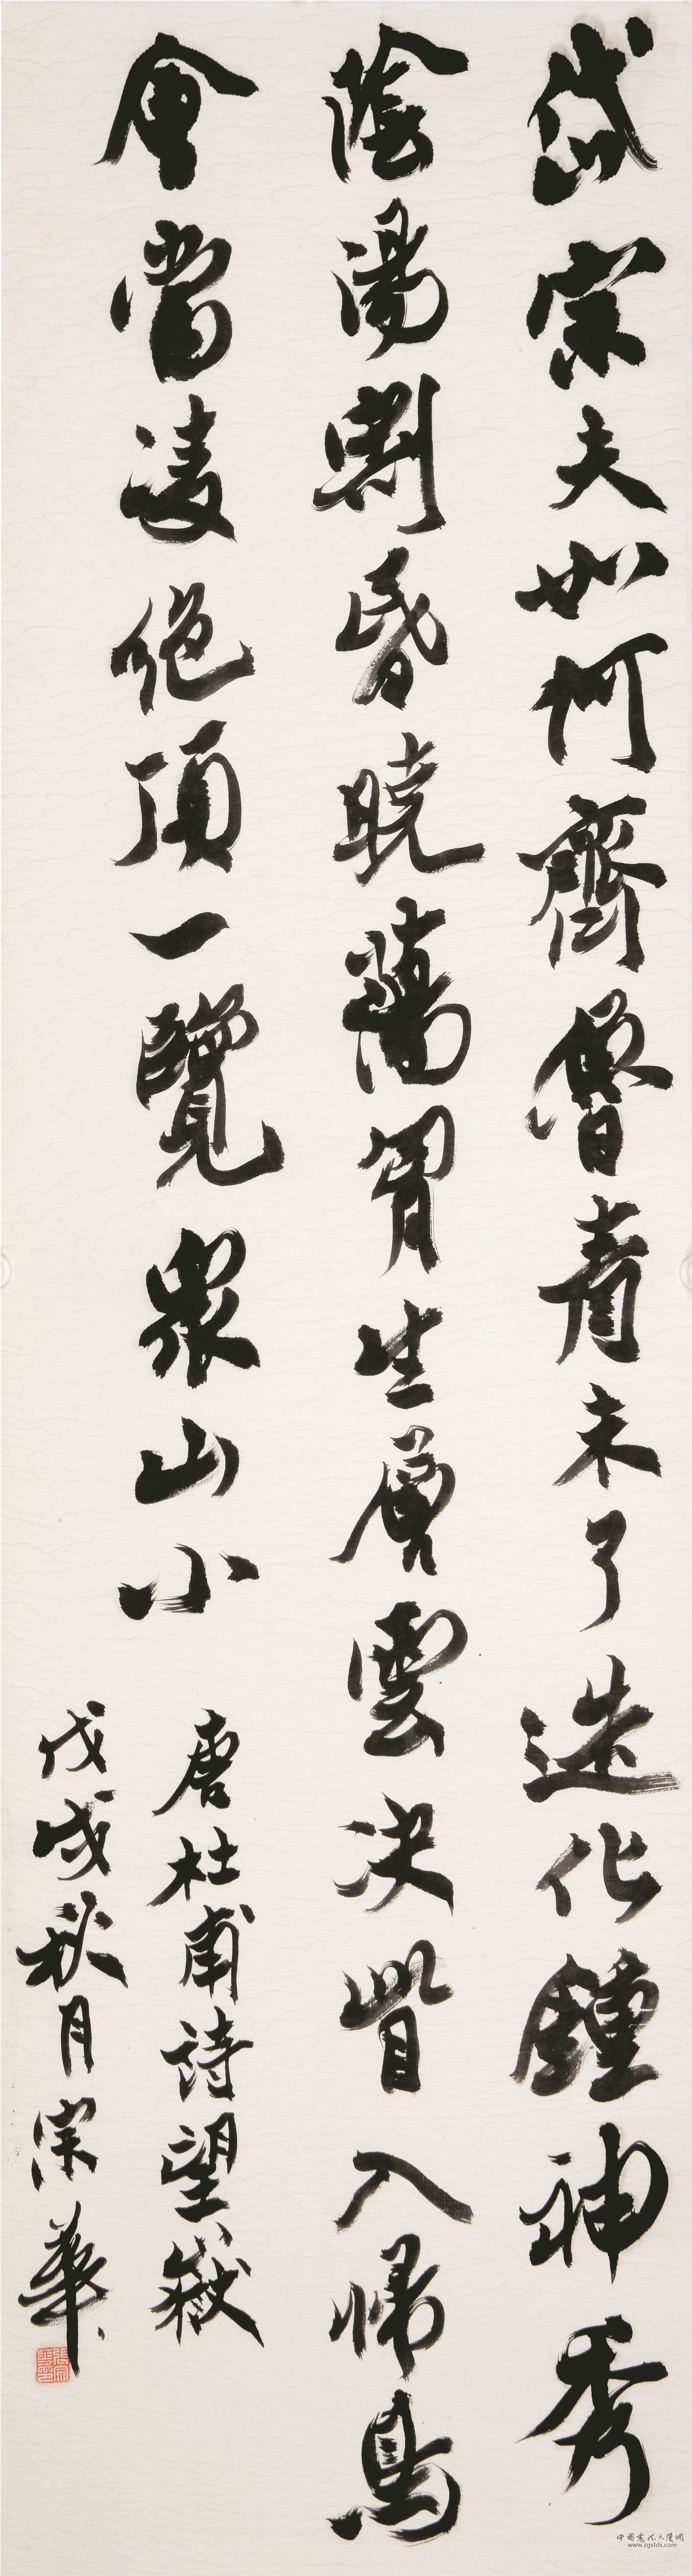 岱宗夫如何齊魯青未了造化鍾神秀
陰陽割昏曉蕩胷生層雲決眥入歸鳥
會當凌絕頂一覽衆山小
唐杜甫詩望嶽
戊戌秋月宗華
中國書法大廈網
www.zgsfds.com